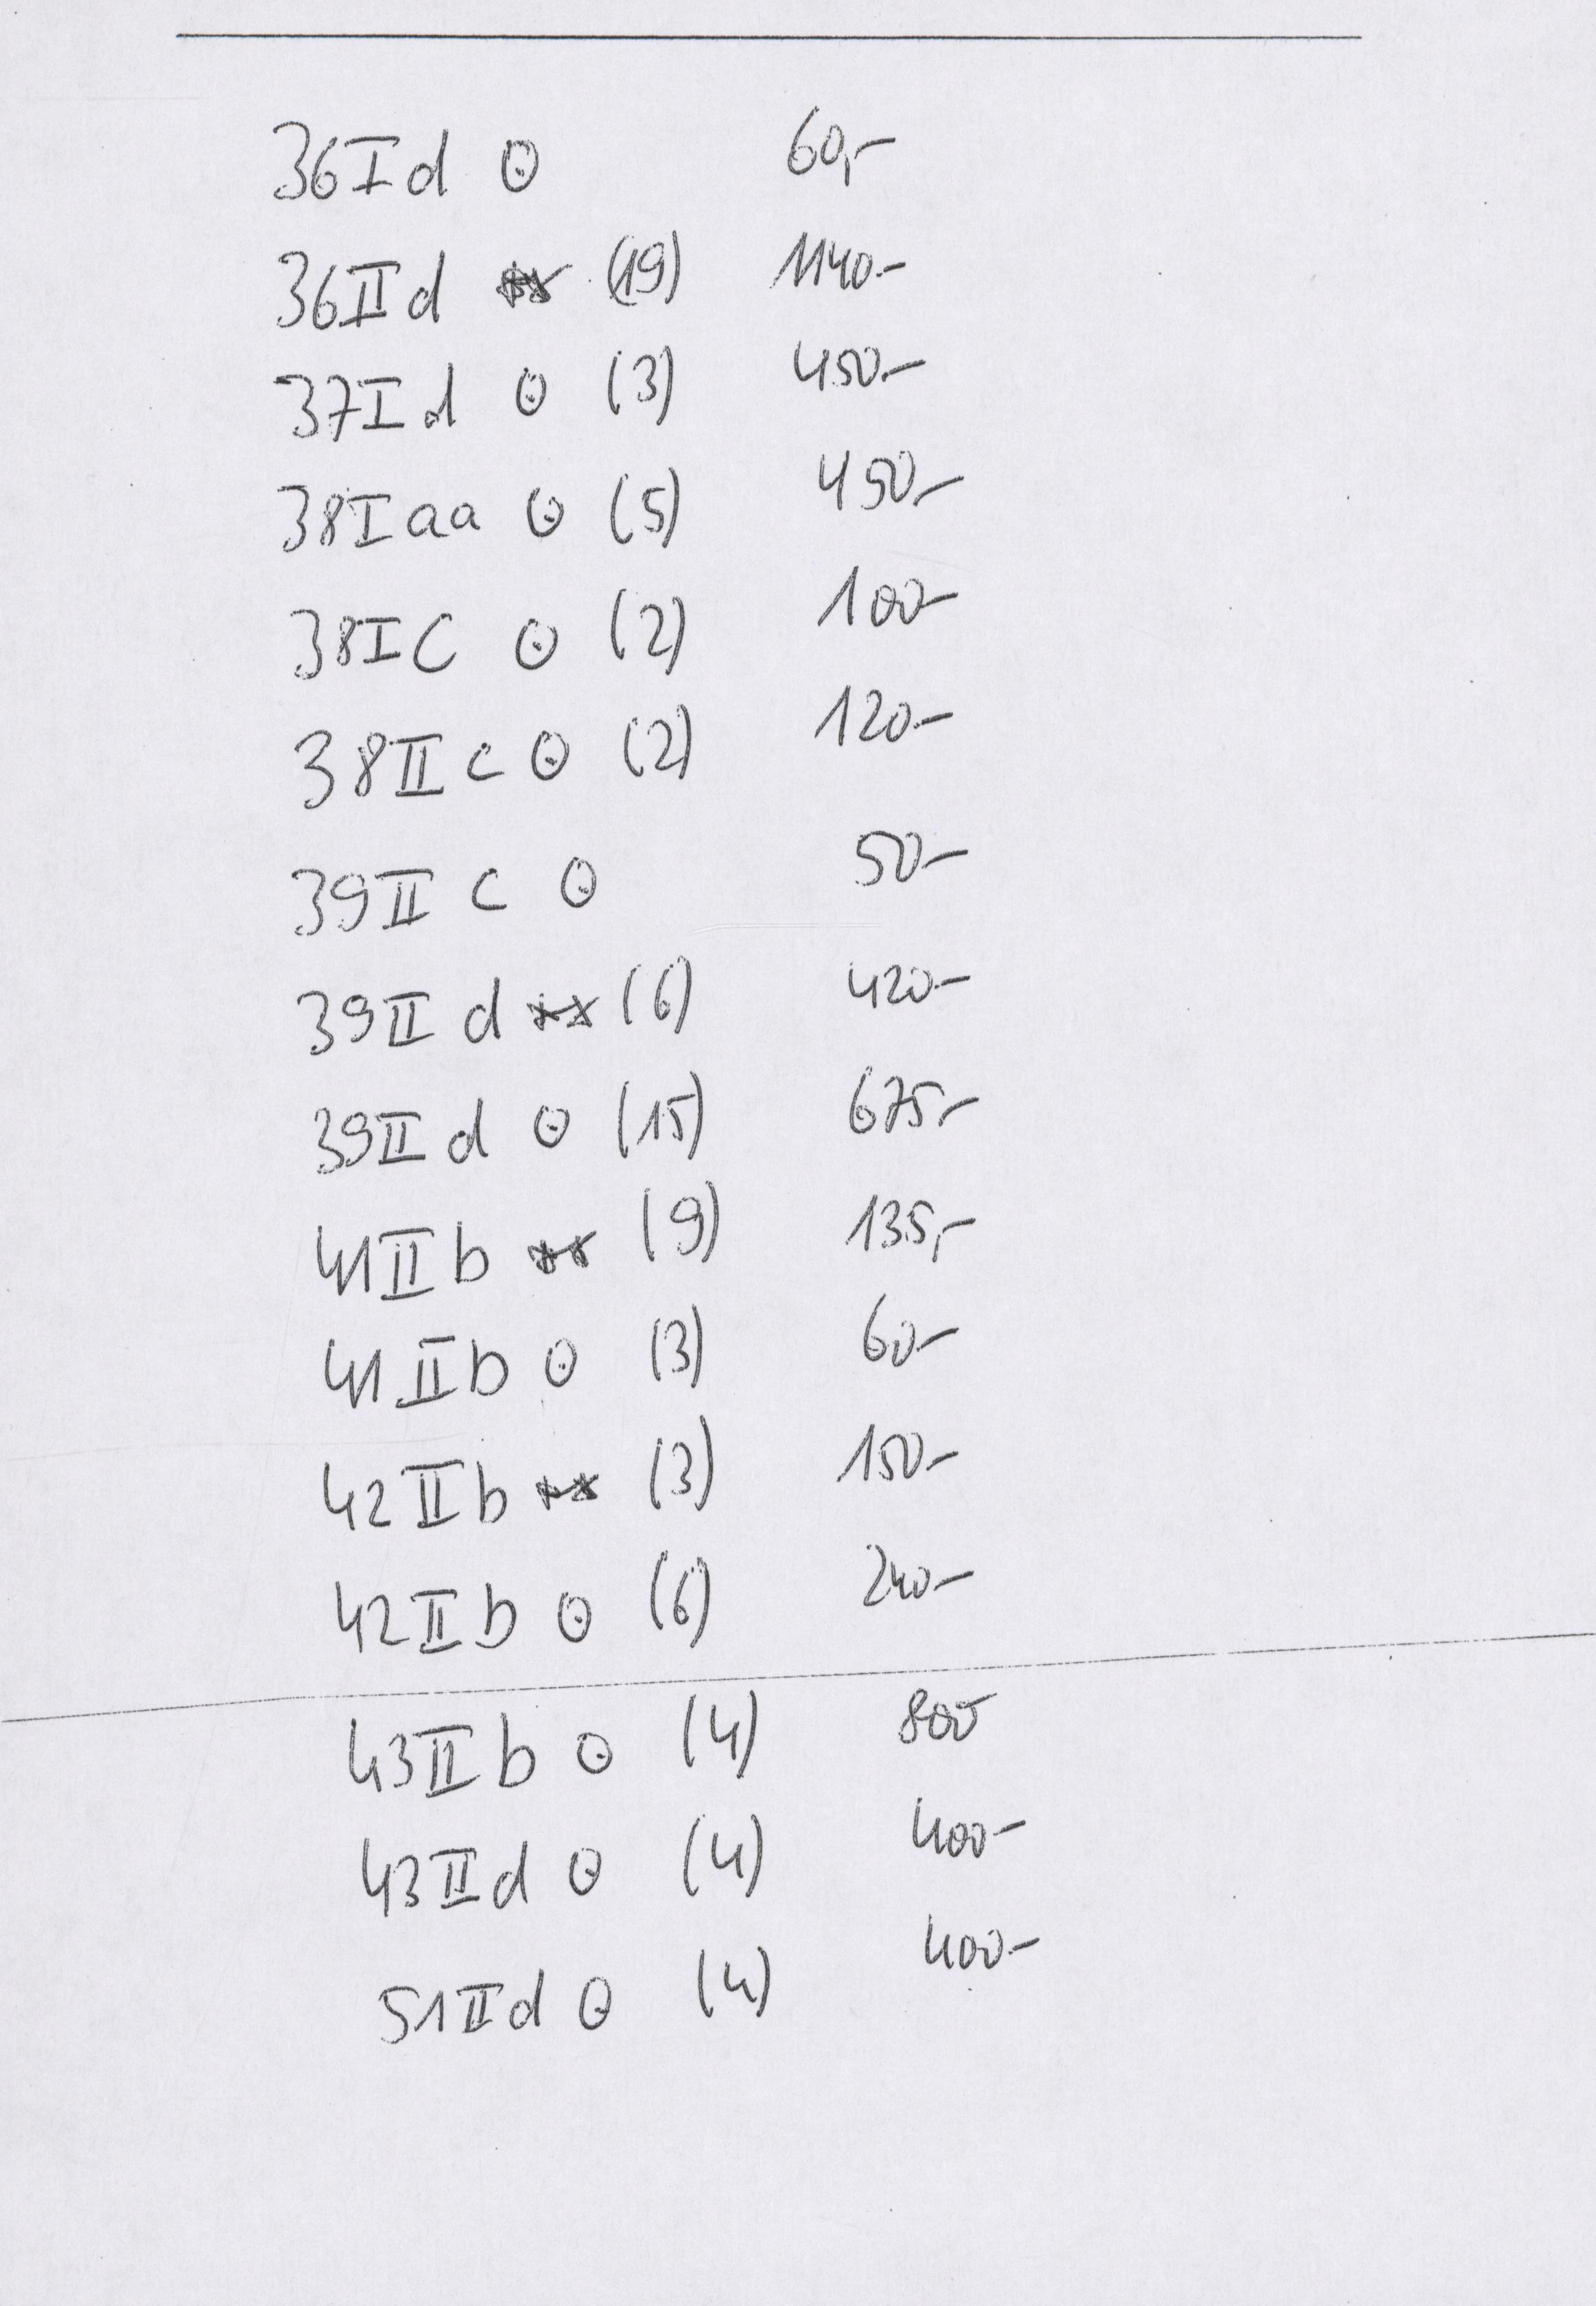 36 I d ⊙ 60,-
36 II d ** (19) 1140.-
37 I d ⊙ (3) 450.-
38 I aa ⊙ (5) 450,-
38 I C ⊙ (2) 100-
38 II c ⊙ (2) 120-
39 II c ⊙ 50-
39 II d ** (6) 420-
39 II d ⊙ (15) 675,-
41 II b ** (9) 135,-
41 II b ⊙ (3) 60-
42 II b ** (3) 150-
42 II b ⊙ (6) 240-
43 II b ⊙ (4) 800-
43 II d ⊙ (4) 400-
51 II d ⊙ (4) 400.-